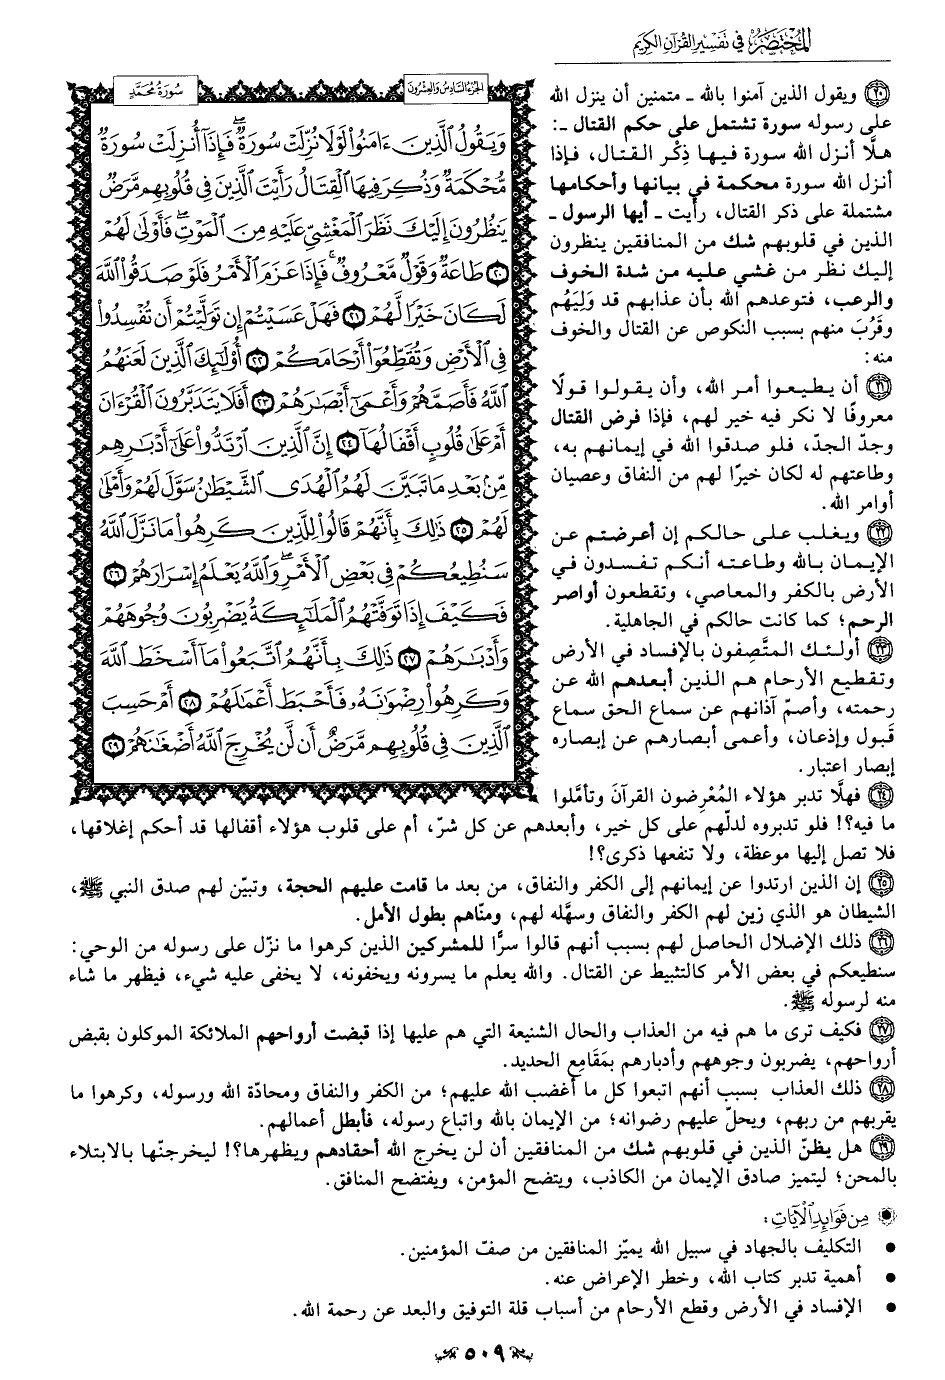 المختصر في تفسير القرآن الكريم
سورة محمد
الجزء السادس والعشرون
وَيَقُولُ الَّذِينَ ءَامَنُوا۟ لَوْلَا نُزِّلَتْ سُورَةٌ ۖ فَإِذَآ أُنزِلَتْ سُورَةٌ
مُّحْكَمَةٌ وَذُكِرَ فِيهَا الْقِتَالُ رَأَيْتَ الَّذِينَ فِي قُلُوبِهِم مَّرَضٌ
يَنظُرُونَ إِلَيْكَ نَظَرَ الْمَغْشِيِّ عَلَيْهِ مِنَ الْمَوْتِ ۖ فَأَوْلَىٰ لَهُمْ
٢٠ طَاعَةٌ وَقَوْلٌ مَّعْرُوفٌ ۚ فَإِذَا عَزَمَ الْأَمْرُ فَلَوْ صَدَقُوا۟ اللَّهَ
لَكَانَ خَيْرًا لَّهُمْ ٢١ فَهَلْ عَسَيْتُمْ إِن تَوَلَّيْتُمْ أَن تُفْسِدُوا۟
فِي الْأَرْضِ وَتُقَطِّعُوٓا۟ أَرْحَامَكُمْ ٢٢ أُو۟لَٰٓئِكَ الَّذِينَ لَعَنَهُمُ
اللَّهُ فَأَصَمَّهُمْ وَأَعْمَىٰٓ أَبْصَٰرَهُمْ ٢٣ أَفَلَا يَتَدَبَّرُونَ الْقُرْءَانَ
أَمْ عَلَىٰ قُلُوبٍ أَقْفَالُهَآ ٢٤ إِنَّ الَّذِينَ ارْتَدُّوا۟ عَلَىٰٓ أَدْبَٰرِهِم
مِّنۢ بَعْدِ مَا تَبَيَّنَ لَهُمُ الْهُدَى الشَّيْطَٰنُ سَوَّلَ لَهُمْ وَأَمْلَىٰ
لَهُمْ ٢٥ ذَٰلِكَ بِأَنَّهُمْ قَالُوا۟ لِلَّذِينَ كَرِهُوا۟ مَا نَزَّلَ اللَّهُ
سَنُطِيعُكُمْ فِي بَعْضِ الْأَمْرِ ۖ وَاللَّهُ يَعْلَمُ إِسْرَارَهُمْ ٢٦
فَكَيْفَ إِذَا تَوَفَّتْهُمُ الْمَلَٰٓئِكَةُ يَضْرِبُونَ وُجُوهَهُمْ
وَأَدْبَٰرَهُمْ ٢٧ ذَٰلِكَ بِأَنَّهُمُ اتَّبَعُوا۟ مَآ أَسْخَطَ اللَّهَ
وَكَرِهُوا۟ رِضْوَٰنَهُۥ فَأَحْبَطَ أَعْمَٰلَهُمْ ٢٨ أَمْ حَسِبَ
الَّذِينَ فِي قُلُوبِهِم مَّرَضٌ أَن لَّن يُخْرِجَ اللَّهُ أَضْغَٰنَهُمْ ٢٩
٢٠ ويقول الذين آمنوا بالله ـ متمنين أن ينزل الله
على رسوله سورة تشتمل على حكم القتال ـ:
هلَّا أنزل الله سورة فيها ذِكْر القتال، فإذا
أنزل الله سورة محكمة في بيانها وأحكامها
مشتملة على ذكر القتال، رأيت ـ أيها الرسول ـ
الذين في قلوبهم شك من المنافقين ينظرون
إليك نظر من غشي عليه من شدة الخوف
والرعب، فتوعدهم الله بأن عذابهم قد وَلِيَهُم
وقَرُبَ منهم بسبب النكوص عن القتال والخوف
منه:
٢١ أن يطيعوا أمر الله، وأن يقولوا قولًا
معروفًا لا نكر فيه خير لهم، فإذا فرض القتال
وجدّ الجدّ، فلو صدقوا الله في إيمانهم به،
وطاعتهم له لكان خيرًا لهم من النفاق وعصيان
أوامر الله.
٢٢ ويغلب على حالكم إن أعرضتم عن
الإيمان بالله وطاعته أنكم تفسدون في
الأرض بالكفر والمعاصي، وتقطعون أواصر
الرحم؛ كما كانت حالكم في الجاهلية.
٢٣ أولئك المتَّصِفون بالإفساد في الأرض
وتقطيع الأرحام هم الذين أبعدهم الله عن
رحمته، وأصمّ آذانهم عن سماع الحق سماع
قبول وإذعان، وأعمى أبصارهم عن إبصاره
إبصار اعتبار.
٢٤ فهلَّا تدبر هؤلاء المُعْرِضون القرآنَ وتأمَّلوا
ما فيه؟! فلو تدبروه لدلّهم على كل خير، وأبعدهم عن كل شرّ، أم على قلوب هؤلاء أقفالها قد أحكم إغلاقها،
فلا تصل إليها موعظة، ولا تنفعها ذكرى؟!
٢٥ إن الذين ارتدوا عن إيمانهم إلى الكفر والنفاق، من بعد ما قامت عليهم الحجة، وتبيّن لهم صدق النبي ﷺ،
الشيطان هو الذي زين لهم الكفر والنفاق وسهَّله لهم، ومنّاهم بطول الأمل.
٢٦ ذلك الإضلال الحاصل لهم بسبب أنهم قالوا سرًّا للمشركين الذين كرهوا ما نزّل على رسوله من الوحي:
سنطيعكم في بعض الأمر كالتثبيط عن القتال. والله يعلم ما يسرونه ويخفونه، لا يخفى عليه شيء، فيظهر ما شاء
منه لرسوله ﷺ.
٢٧ فكيف ترى ما هم فيه من العذاب والحال الشنيعة التي هم عليها إذا قبضت أرواحهم الملائكة الموكلون بقبض
أرواحهم، يضربون وجوههم وأدبارهم بمَقَامِع الحديد.
٢٨ ذلك العذاب بسبب أنهم اتبعوا كل ما أغضب الله عليهم؛ من الكفر والنفاق ومحادّة الله ورسوله، وكرهوا ما
يقربهم من ربهم، ويحلّ عليهم رضوانه؛ من الإيمان بالله واتباع رسوله، فأبطل أعمالهم.
٢٩ هل يظنّ الذين في قلوبهم شك من المنافقين أن لن يخرج الله أحقادهم ويظهرها؟! ليخرجنّها بالابتلاء
بالمحن؛ ليتميز صادق الإيمان من الكاذب، ويتضح المؤمن، ويفتضح المنافق.
من فوائد الآيات:
● التكليف بالجهاد في سبيل الله يميّز المنافقين من صفّ المؤمنين.
● أهمية تدبر كتاب الله، وخطر الإعراض عنه.
● الإفساد في الأرض وقطع الأرحام من أسباب قلة التوفيق والبعد عن رحمة الله.
٥٠٩